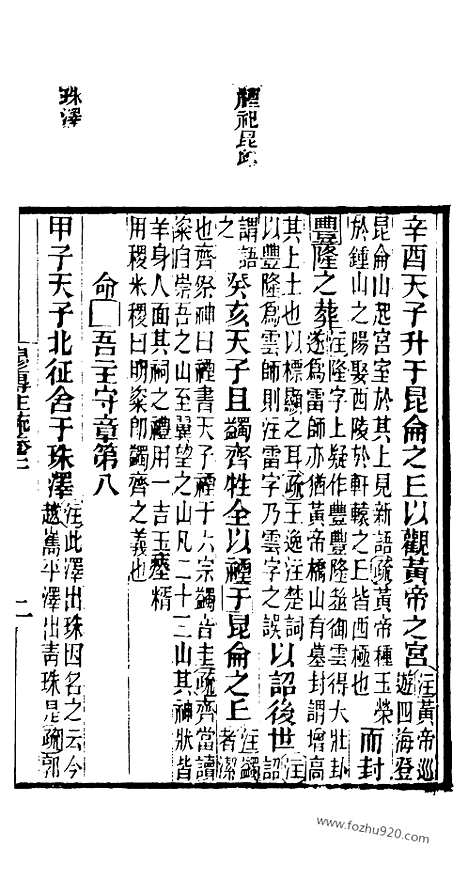 禋祀昆邱
珠澤
辛酉天子升于昆侖之丘以觀黃帝之宮注黃帝巡
遊四海登
昆侖山起宮室於其上見新語疏黃帝種玉榮
於鍾山之陽娶西陵於軒轅之丘皆西極也
而封
豐隆之葬注隆字上疑作豐豐隆筮御雲得大壯卦
遂為雷師亦猶黃帝橋山有墓封謂增高
其上土也以標顯之耳疏王逸注楚詞
以豐隆為雲師則注雷字乃雲字之誤
以詔後世注
詔
謂語
之
癸亥天子具蠲齊牲全以禋于昆侖之丘注蠲
者潔
也齊祭神曰禋書天子禋于六宗蠲音圭疏齊當讀
粢自崇吾之山至翼望之山凡二十三山其神狀皆
羊身人面其祠之禮用一吉玉瘞糈
用稷米稷曰明粢即蠲齊之義也
命□吾二王守章第八
甲子天子北征舍于珠澤注此澤出珠因名之云今
越巂平澤出青珠是疏郭
二
www.fozhu920.com